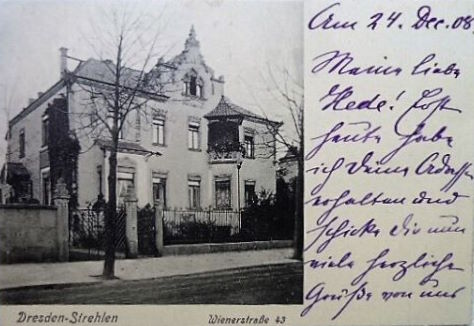 Am 24. Dec. 08.
Meine liebe
Hede! Erst
heute habe
ich Deine Adresse
erhalten und
schicke Dir nun
viele herzliche
Grüße von uns
Dresden-Strehlen
Wienerstraße 43